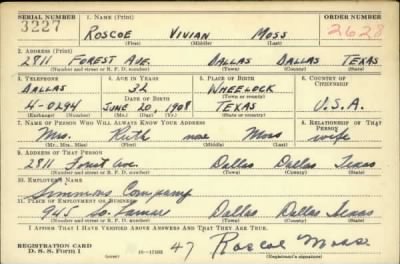 SERIAL NUMBER 1. NAME (Print) ORDER NUMBER
3227 ROSCOE VIVIAN MOSS 2628
(First) (Middle) (Last)
2. ADDRESS (Print)
2811 FOREST AVE. DALLAS DALLAS TEXAS
(Number and street or R. F. D. number) (Town) (County) (State)
3. TELEPHONE 4. AGE IN YEARS 5. PLACE OF BIRTH 6. COUNTRY OF CITIZENSHIP
DALLAS 32 WHEELOCK
DATE OF BIRTH (Town or county)
4-0294 JUNE 20, 1908 TEXAS U.S.A.
(Exchange) (Number) (Mo.) (Day) (Yr.) (State or country)
7. NAME OF PERSON WHO WILL ALWAYS KNOW YOUR ADDRESS 8. RELATIONSHIP OF THAT PERSON
Mrs. Ruth mae Moss wife
(Mr., Mrs., Miss) (First) (Middle) (Last)
9. ADDRESS OF THAT PERSON
2811 Forest Ave. Dallas Dallas Texas
(Number and street or R. F. D. number) (Town) (County) (State)
10. EMPLOYER'S NAME
Simmons Company
11. PLACE OF EMPLOYMENT OR BUSINESS
945 So. Lamar Dallas Dallas Texas
(Number and street or R. F. D. number) (Town) (County) (State)
I AFFIRM THAT I HAVE VERIFIED ABOVE ANSWERS AND THAT THEY ARE TRUE.
REGISTRATION CARD
D. S. S. Form 1 (over) 47 Roscoe Moss
(Registrant's signature)